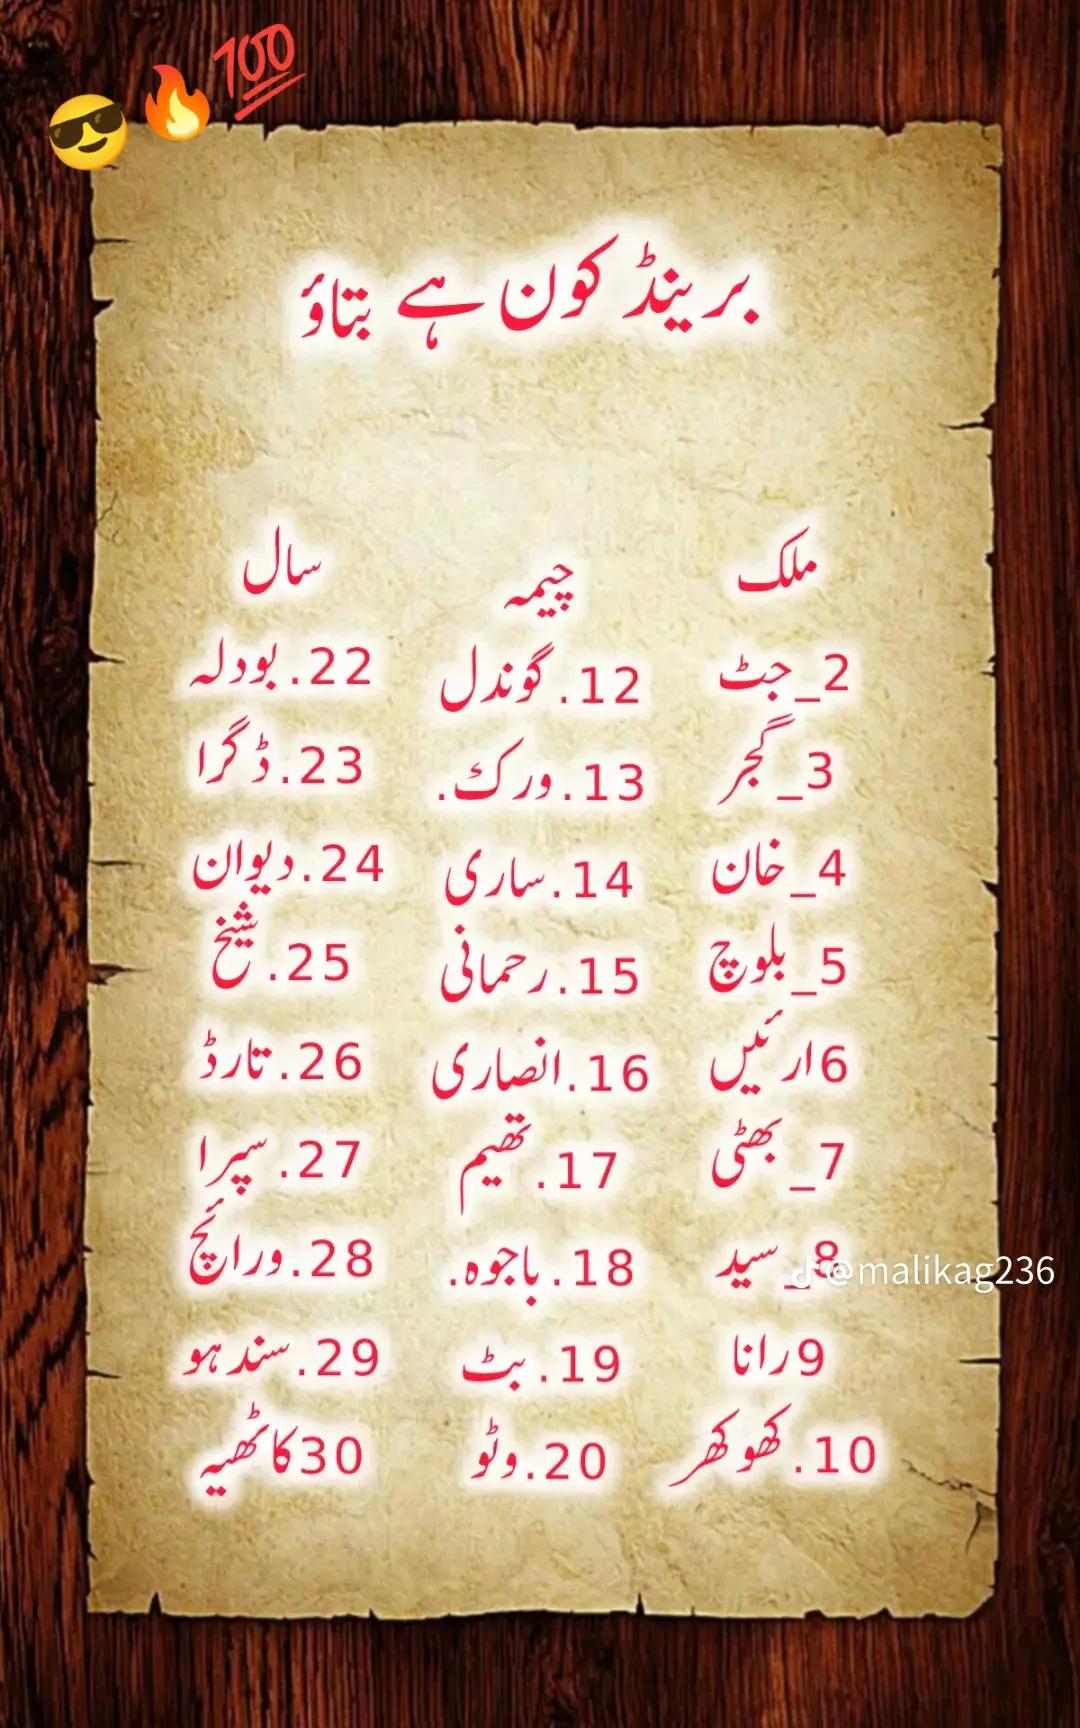 برینڈ کون ہے بتاؤ
ملک
2_جٹ
3_گجر
4_خان
5_بلوچ
6ارئیں
7_بھٹی
8_سید
9رانا
10.کھوکھر
چیمہ
12.گوندل
13.ورک.
14.ساری
15.رحمانی
16.انصاری
17.تھیم
18.باجوہ.
19.بٹ
20.وٹو
سال
22.بودلہ
23.ڈگرا
24.دیوان
25.شیخ
26.تارڈ
27.سپرا
28.ورائچ
29.سندہو
30کاٹھیہ
@malikag236